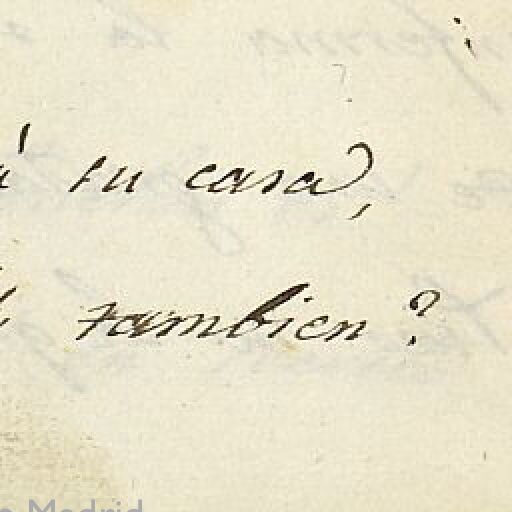 á su casa,
tambien?
Madrid